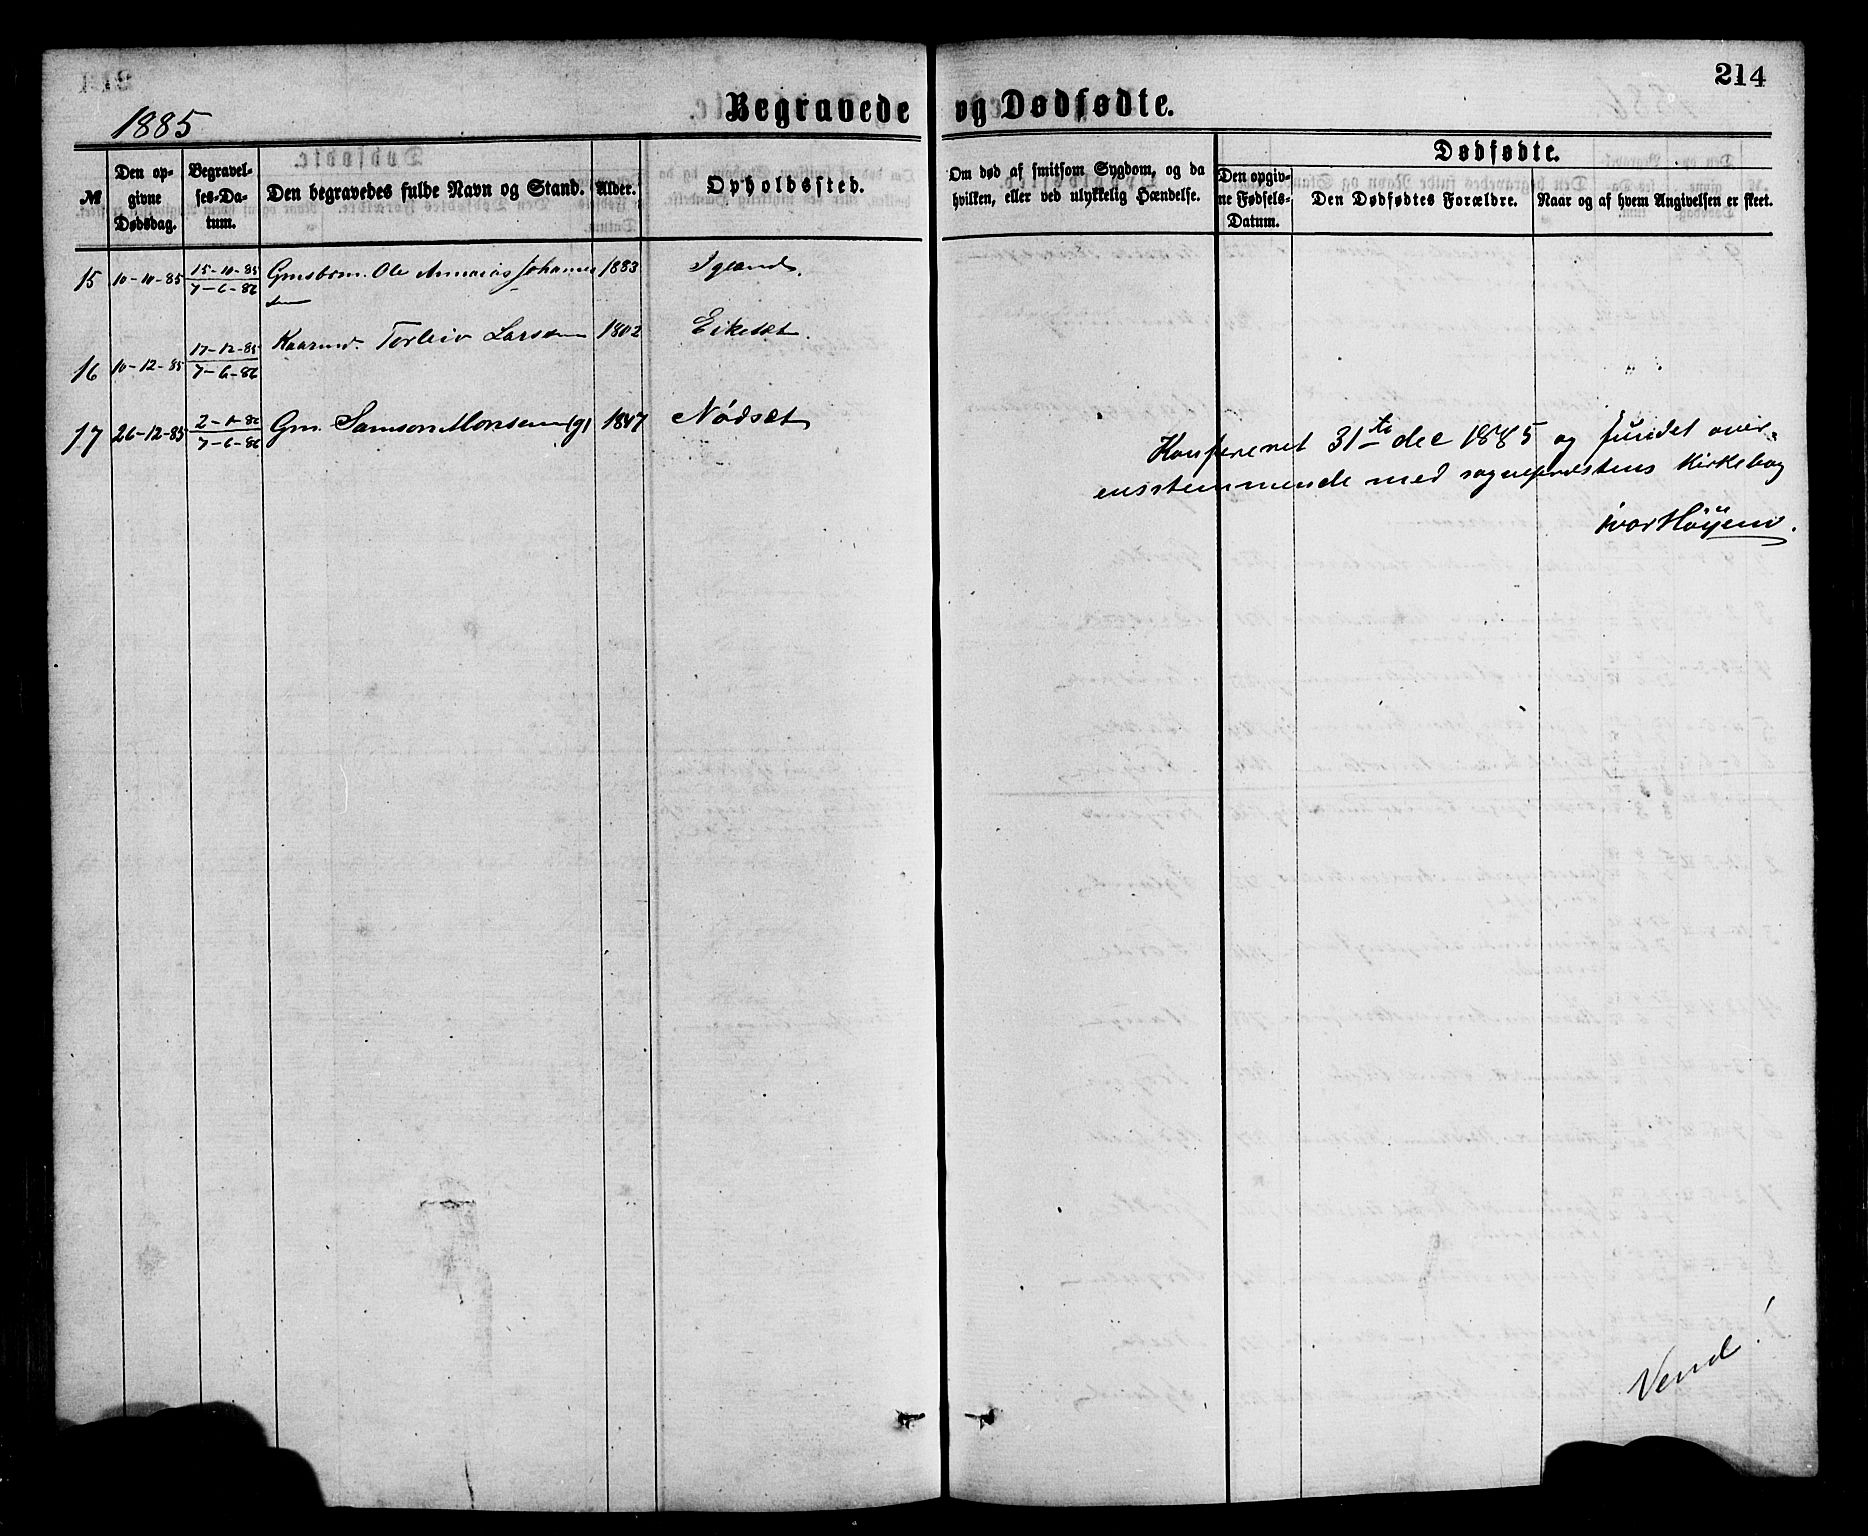 214
Begravede og Dødfødte.
1885
№
Den op-
givne
Dødsdag.
Begravel-
ses-Da-
tum.
Den begravedes fulde Navn og Stand.
Alder.
Opholdssted.
Om død af smitsom Sygdom, og da
hvilken, eller ved ulykkelig Hændelse.
Dødfødte.
Den opgiv-
ne Fødsels-
Datum.
Den Dødfødtes Forældre.
Naar og af hvem Angivelsen er skeet.
15 10-10-85 15-10-85 Gmsbarn. Ole Annanias Johannes 1883 Igland.
7-6-86 sen
16 10-12-85 17-12-85 Kaarmd. Torleiv Larsen 1802 Eikeset.
7-6-86
17 26-12-85 2-1-86 Gm. Samson Monsen (g) 1847 Nödset
7-6-86
Konfereret 31te dec 1885 og fundet over-
ensstemmende med sogneprestens Kirkebog
Ivar Höyem.
Vend!